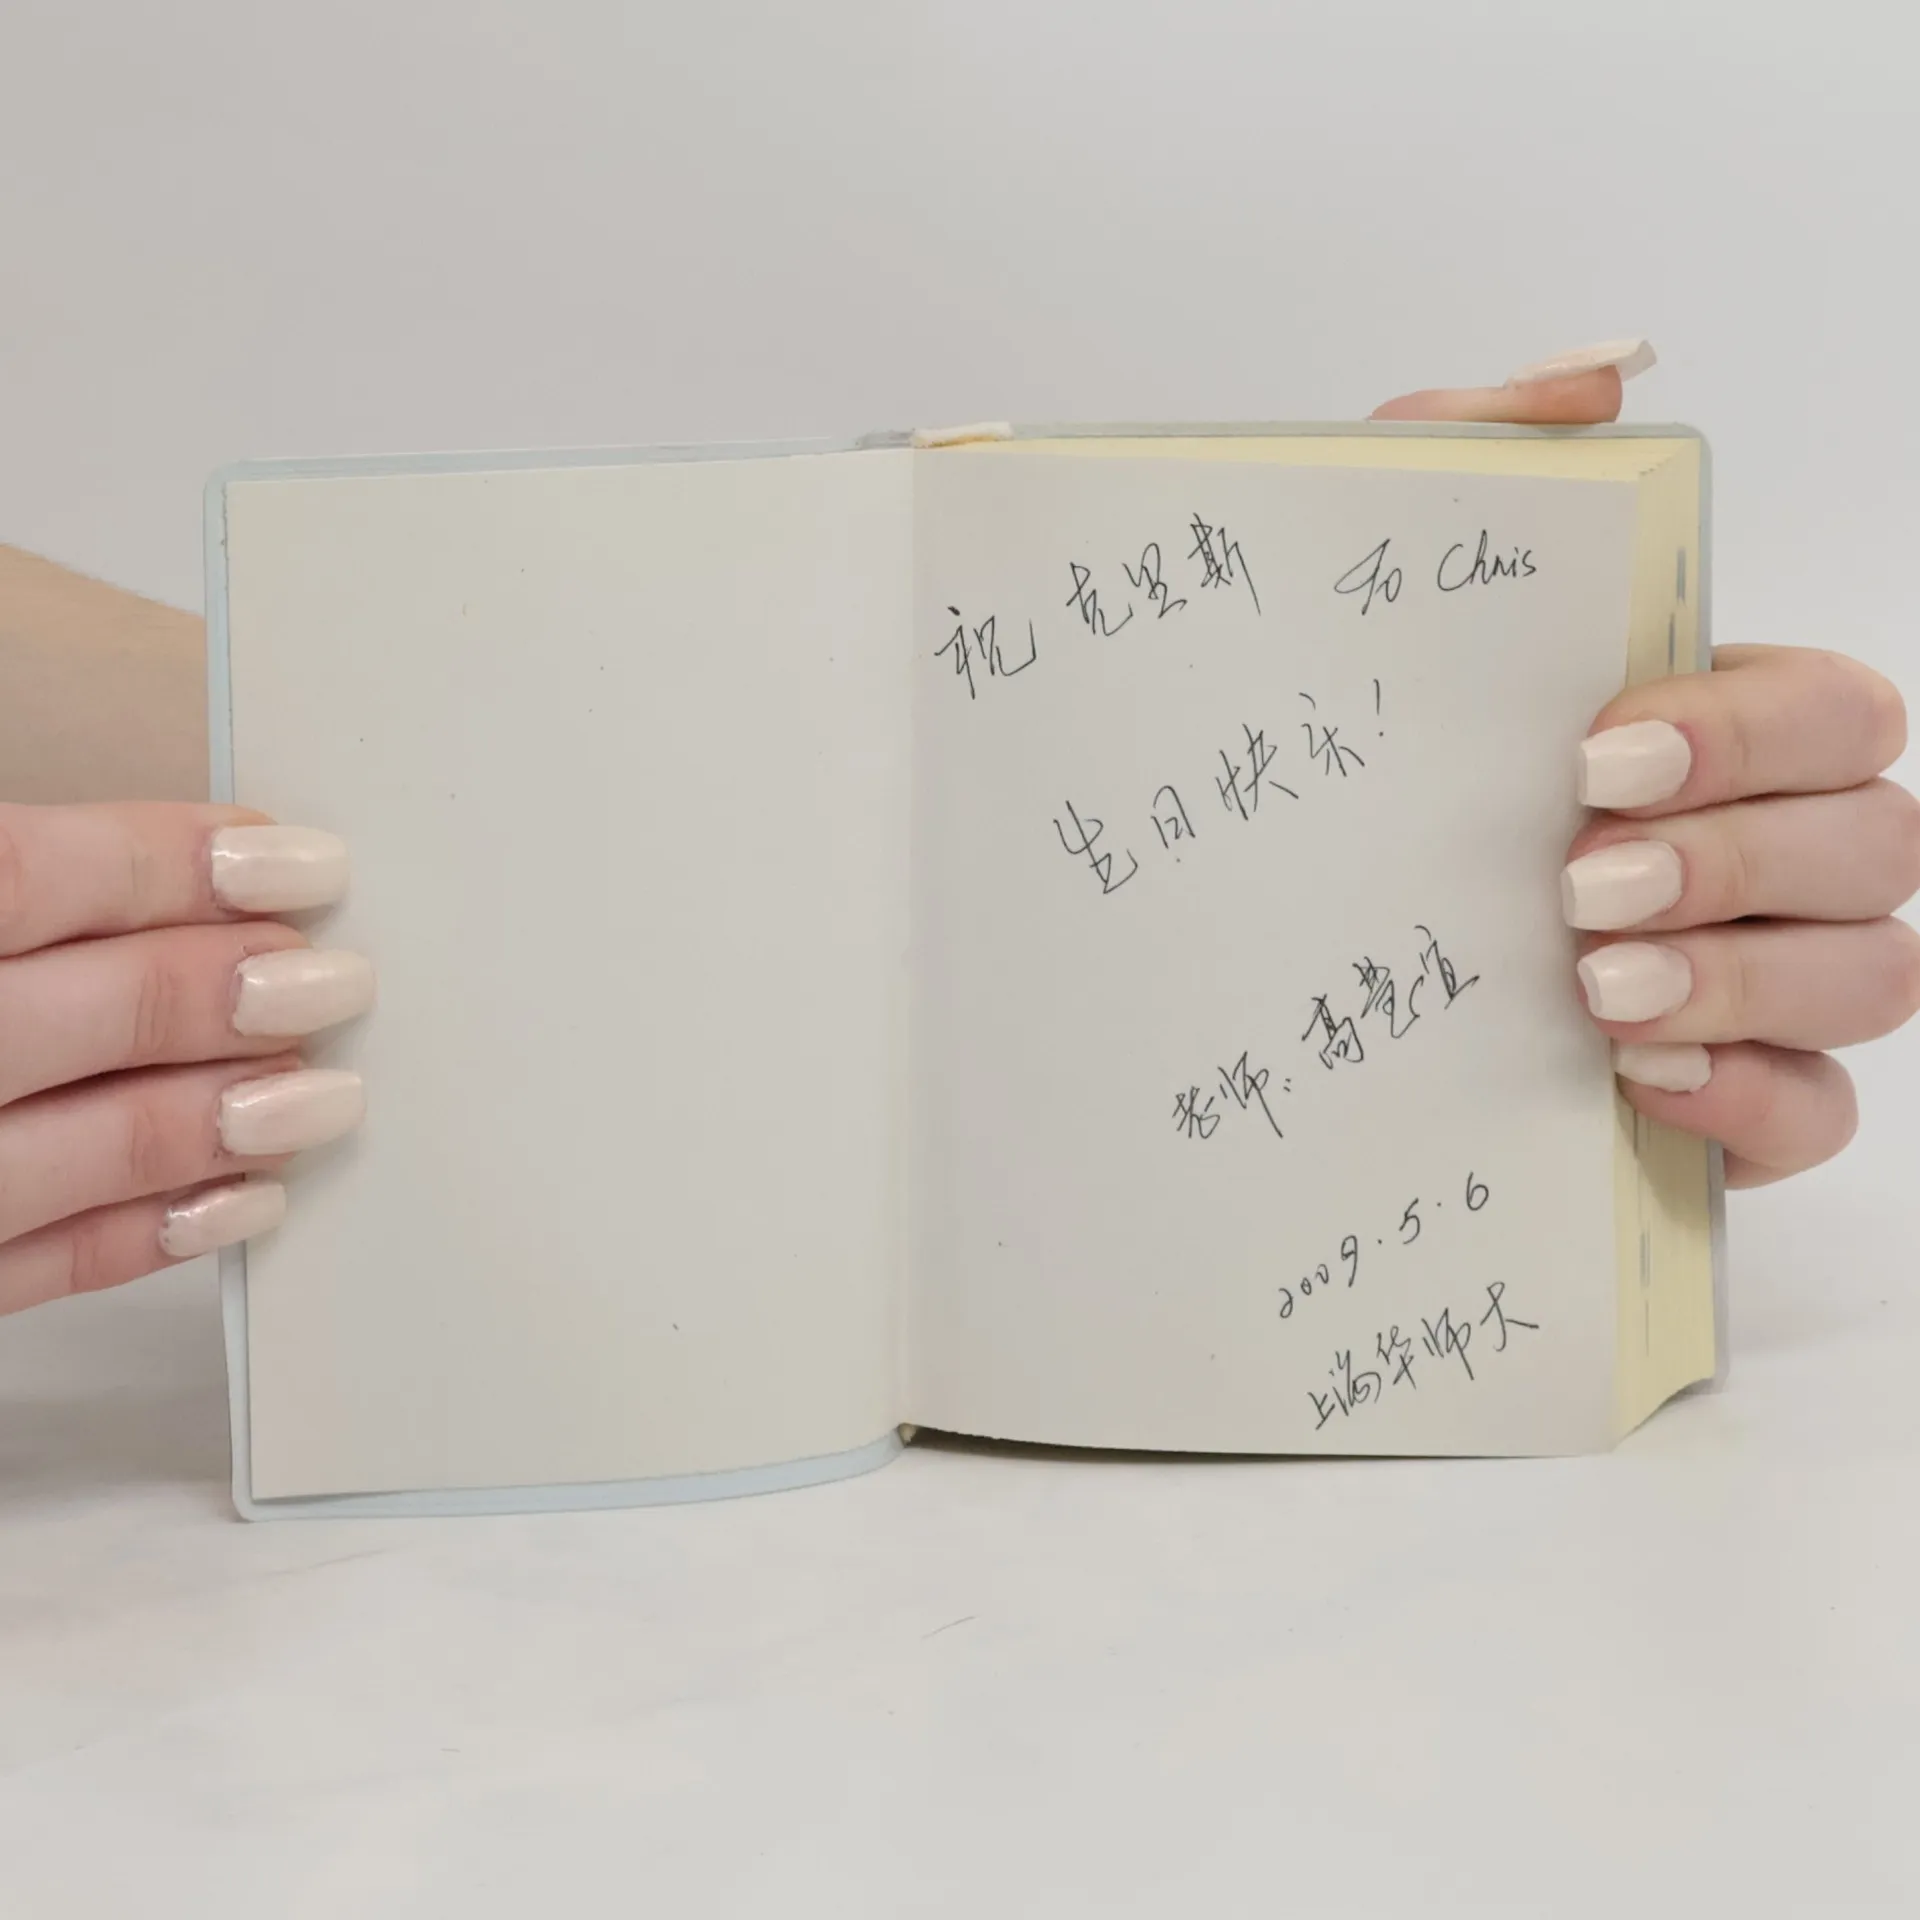 祝 克里斯 To Chris
生日快乐!
老师: 高慧宜
2009.5.6
上海华师大